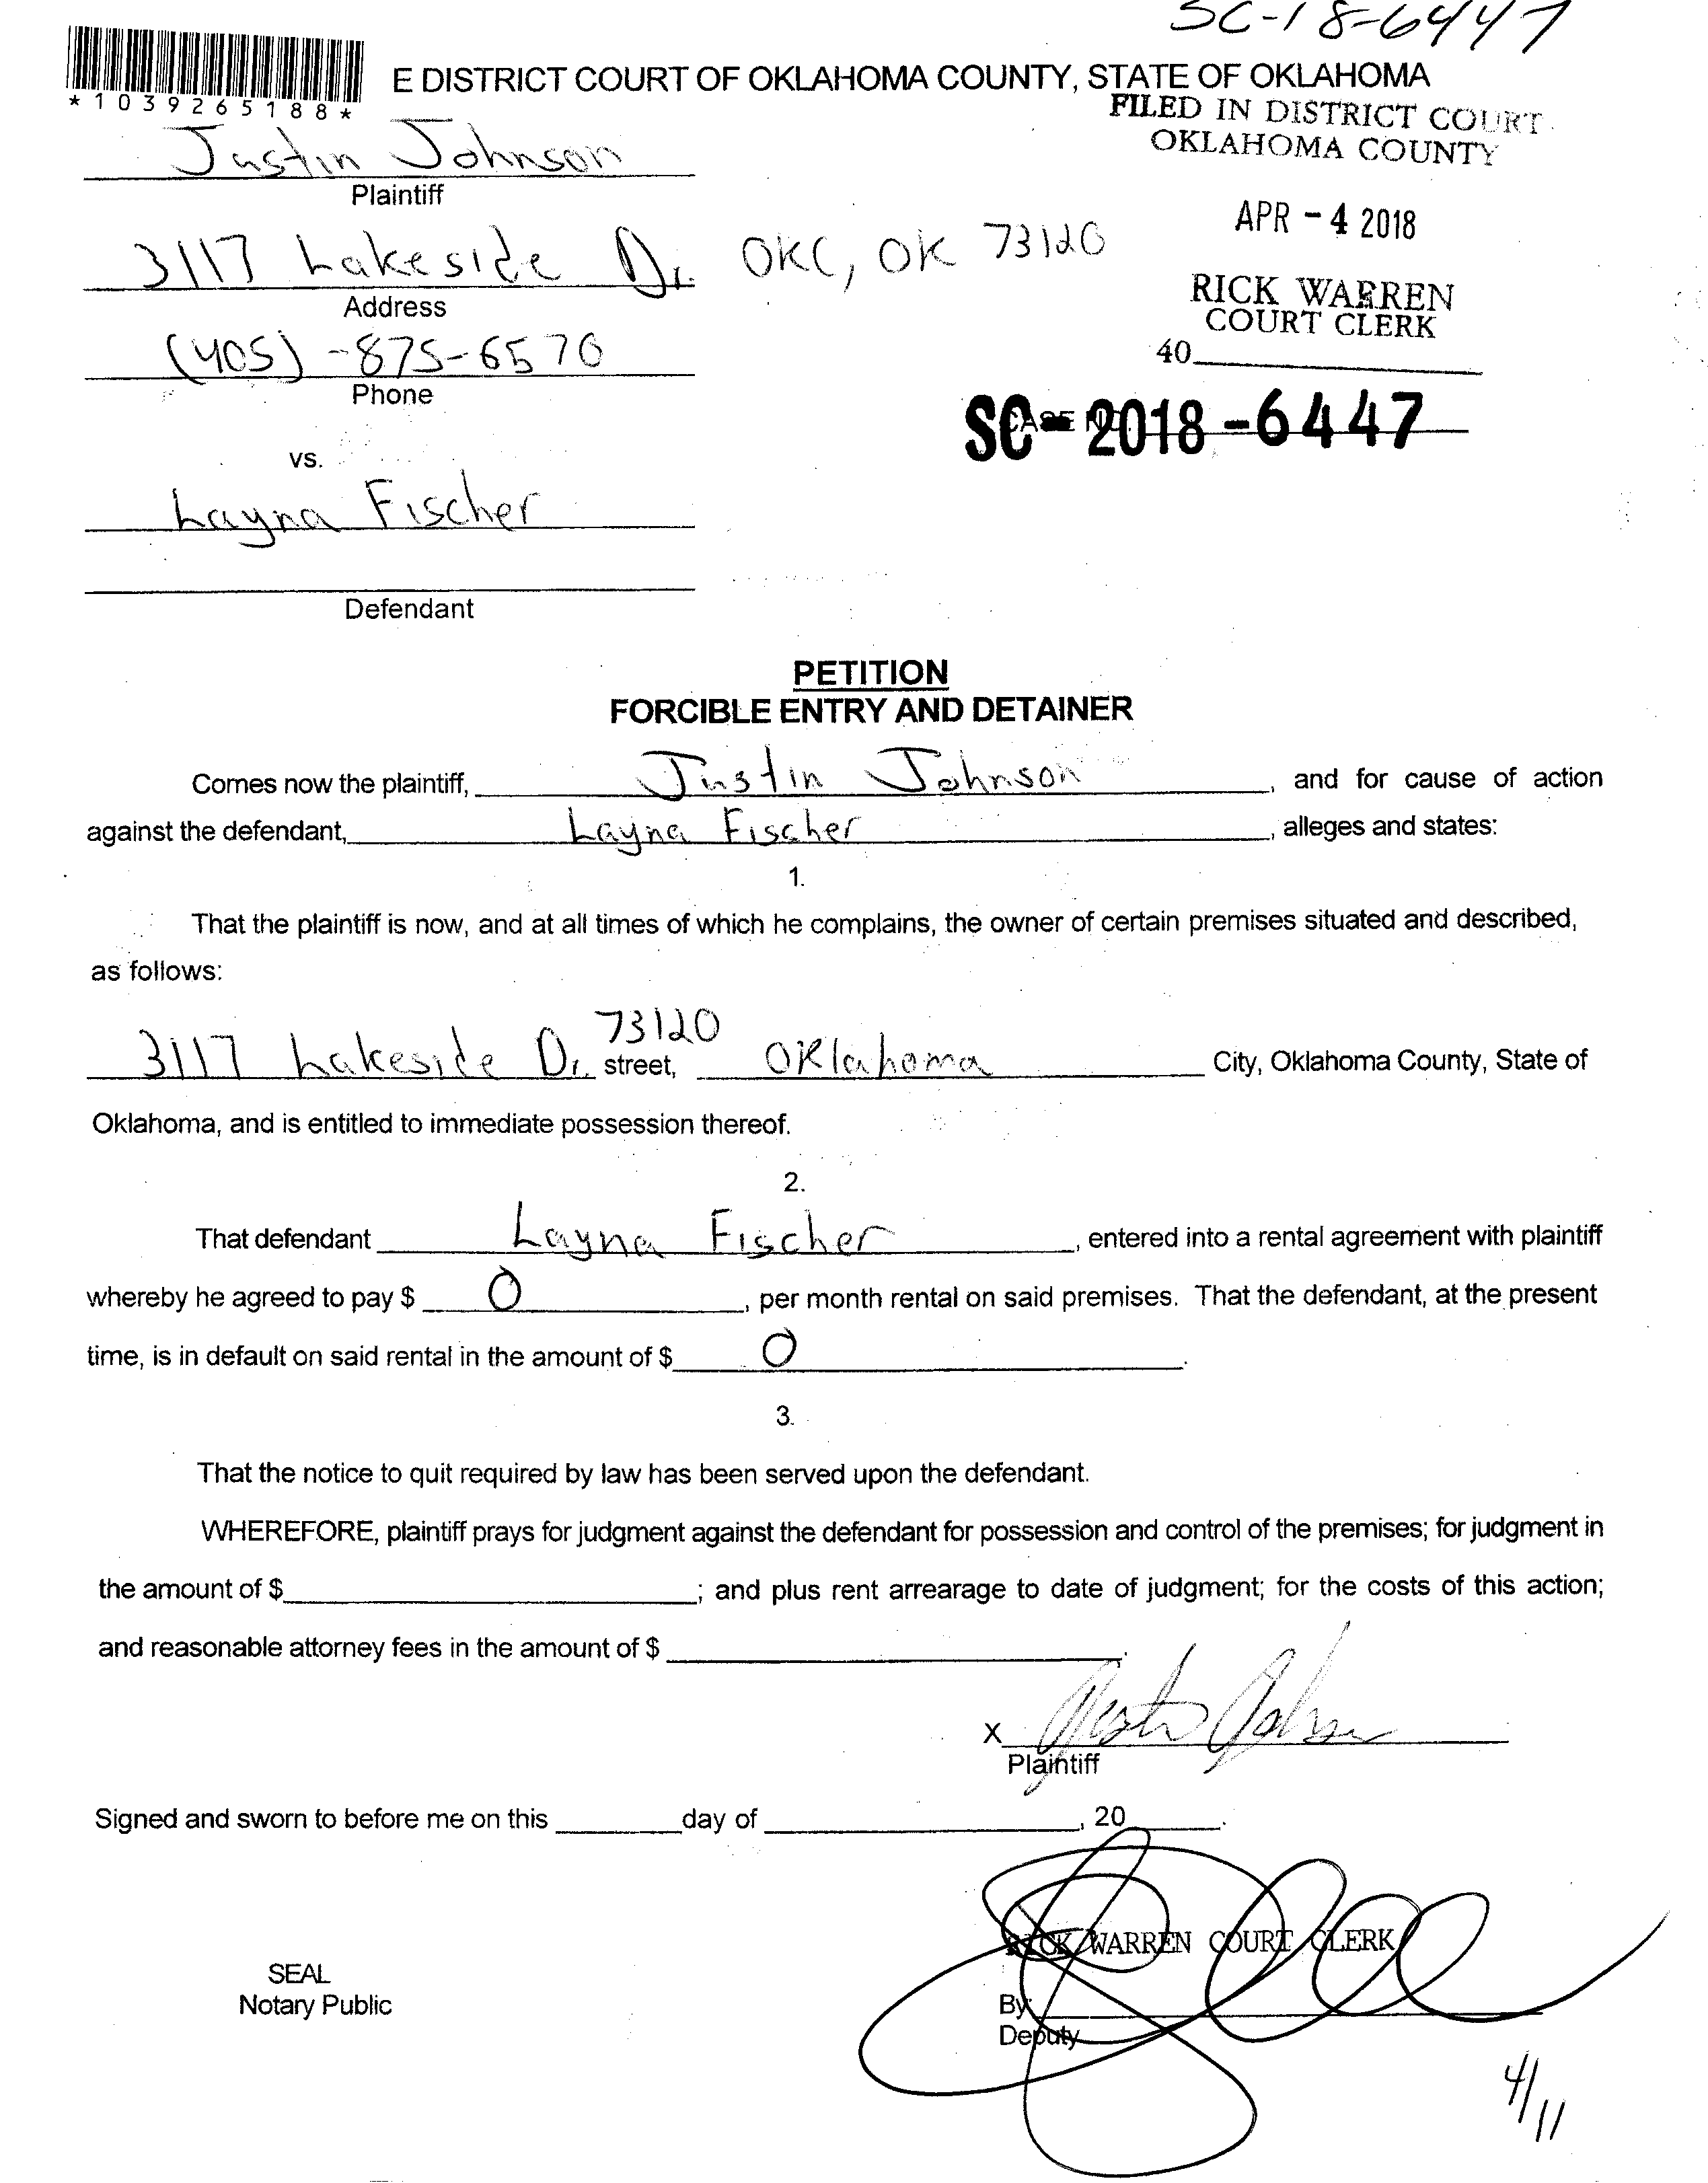 SC-18-6447
E DISTRICT COURT OF OKLAHOMA COUNTY, STATE OF OKLAHOMA
*1039265188*
FILED IN DISTRICT COURT
OKLAHOMA COUNTY
Justin Johnson
Plaintiff
APR - 4 2018
3117 Lakeside Dr. OKC, OK 73120
Address
RICK WARREN
COURT CLERK
(405) -875-6570
Phone
40
CASE NO.
SC - 2018 - 6447
vs.
Layna Fischer
Defendant
PETITION
FORCIBLE ENTRY AND DETAINER
Comes now the plaintiff, Justin Johnson, and for cause of action
against the defendant, Layna Fischer, alleges and states:
1.
That the plaintiff is now, and at all times of which he complains, the owner of certain premises situated and described,
as follows:
73120
3117 Lakeside Dr. street, Oklahoma City, Oklahoma County, State of
Oklahoma, and is entitled to immediate possession thereof.
2.
That defendant Layna Fischer, entered into a rental agreement with plaintiff
whereby he agreed to pay $ 0, per month rental on said premises. That the defendant, at the present
time, is in default on said rental in the amount of $ 0.
3.
That the notice to quit required by law has been served upon the defendant.
WHEREFORE, plaintiff prays for judgment against the defendant for possession and control of the premises; for judgment in
the amount of $ ; and plus rent arrearage to date of judgment; for the costs of this action;
and reasonable attorney fees in the amount of $ .
X Justin Johnson
Plaintiff
Signed and sworn to before me on this day of , 20 .
RICK WARREN COURT CLERK
SEAL
Notary Public
By:
Deputy
4/11